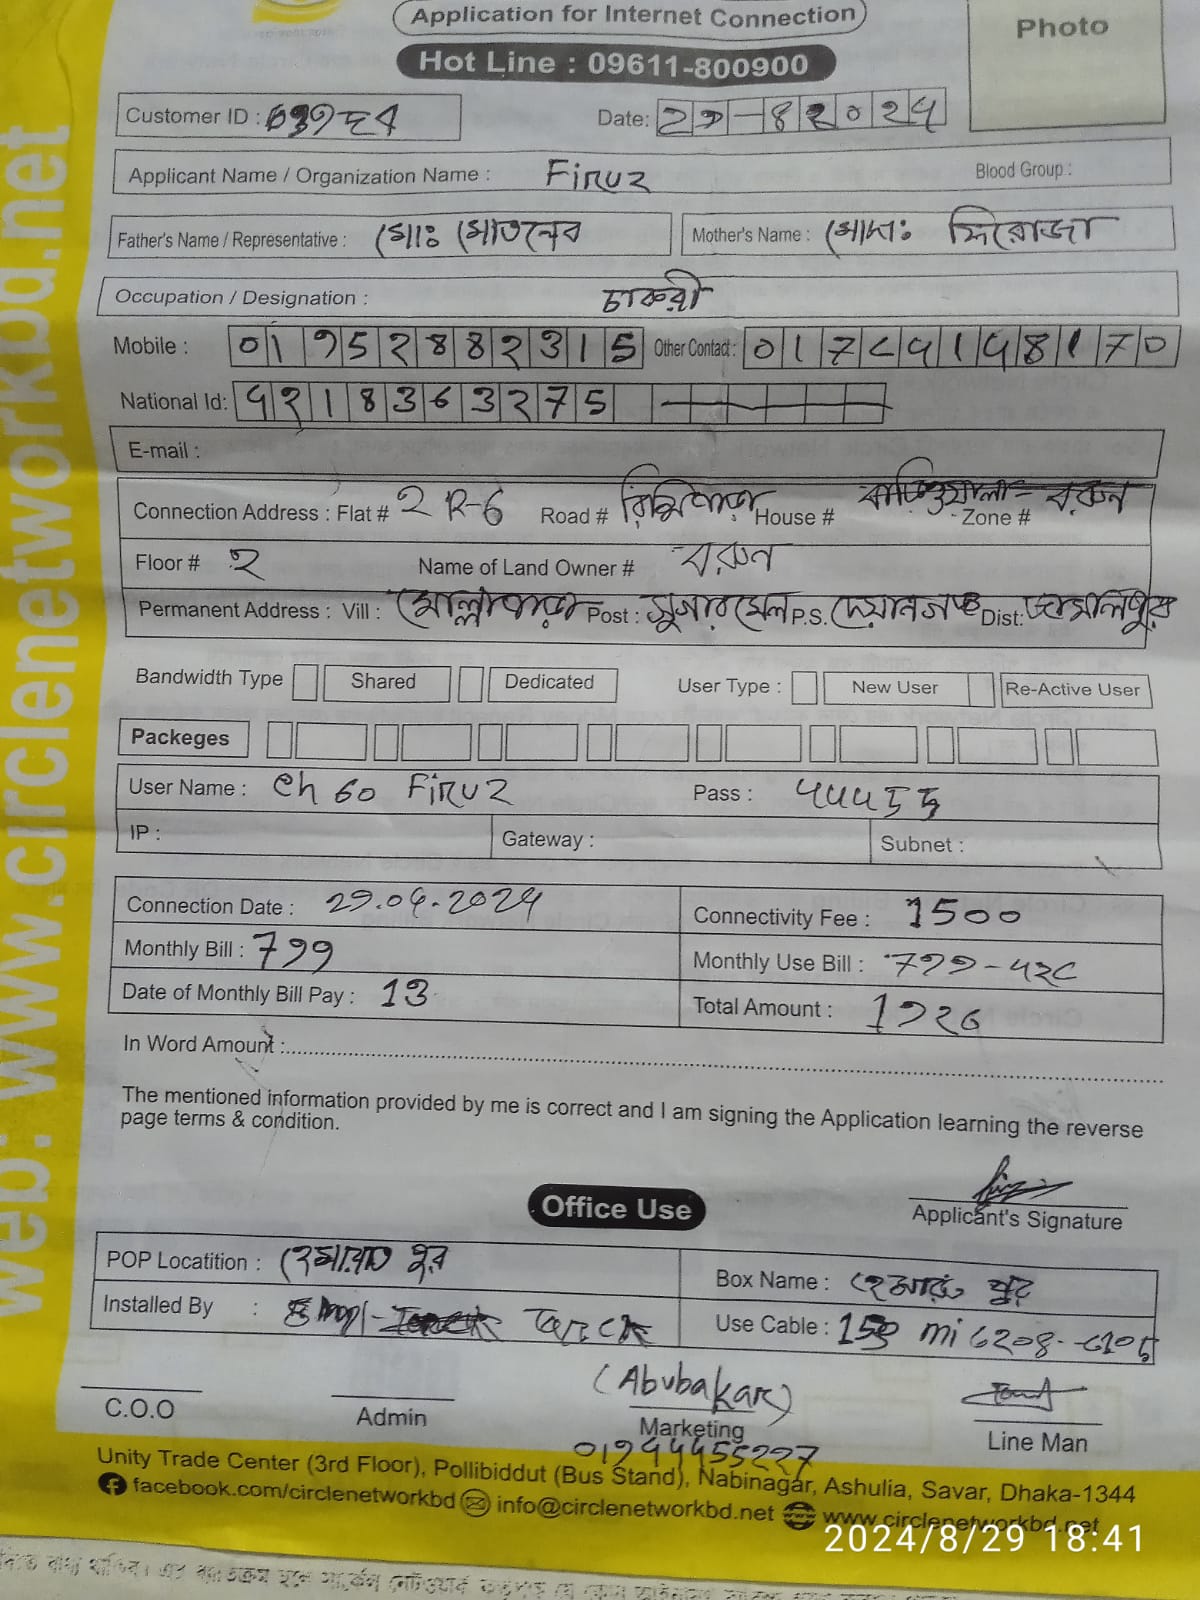 Application for Internet Connection
Photo
Hot Line : 09611-800900
Customer ID :
Date: 29-82024
Applicant Name / Organization Name : Firuz Blood Group :
Father's Name / Representative : মোঃ মোতালেব Mother's Name : মোসাঃ ফিরোজা
Occupation / Designation : চাকরী
Mobile : 01952882315 Other Contact : 01741148170
National Id: 4218363275
E-mail :
Connection Address : Flat # 2 R-6 Road # House # বাড়িওয়ালা- বরুন Zone #
Floor # 2 Name of Land Owner # বরুন
Permanent Address : Vill : মোল্লাপাড়া Post : সুগারমেল P.S. দেয়ানগঞ্জ Dist: জামালপুর
Bandwidth Type Shared Dedicated User Type : New User Re-Active User
Packeges
User Name : Ch 60 Firuz Pass : 44455
IP : Gateway : Subnet :
Connection Date : 29.04.2024 Connectivity Fee : 1500
Monthly Bill : 799 Monthly Use Bill :
Date of Monthly Bill Pay : 13 Total Amount : 1926
In Word Amount :
The mentioned information provided by me is correct and I am signing the Application learning the reverse
page terms & condition.
Applicant's Signature
Office Use
POP Locatition : Box Name :
Installed By : Tareck Use Cable : 150 mi 6208--6105
(Abubakar)
C.O.O Admin Marketing Line Man
01944455227
Unity Trade Center (3rd Floor), Pollibiddut (Bus Stand), Nabinagar, Ashulia, Savar, Dhaka-1344
facebook.com/circlenetworkbd info@circlenetworkbd.net www.circlenetworkbd.net
web: www.circlenetworkbd.net
2024/8/29 18:41